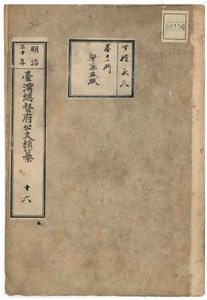 甲種永久
第十一門
明治
三十年
臺灣總督府公文類纂
十六